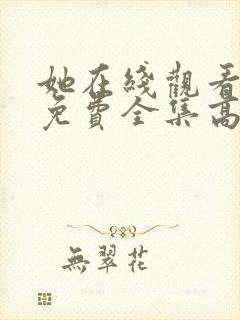 她在綫觀看
免費全集高
無翠花